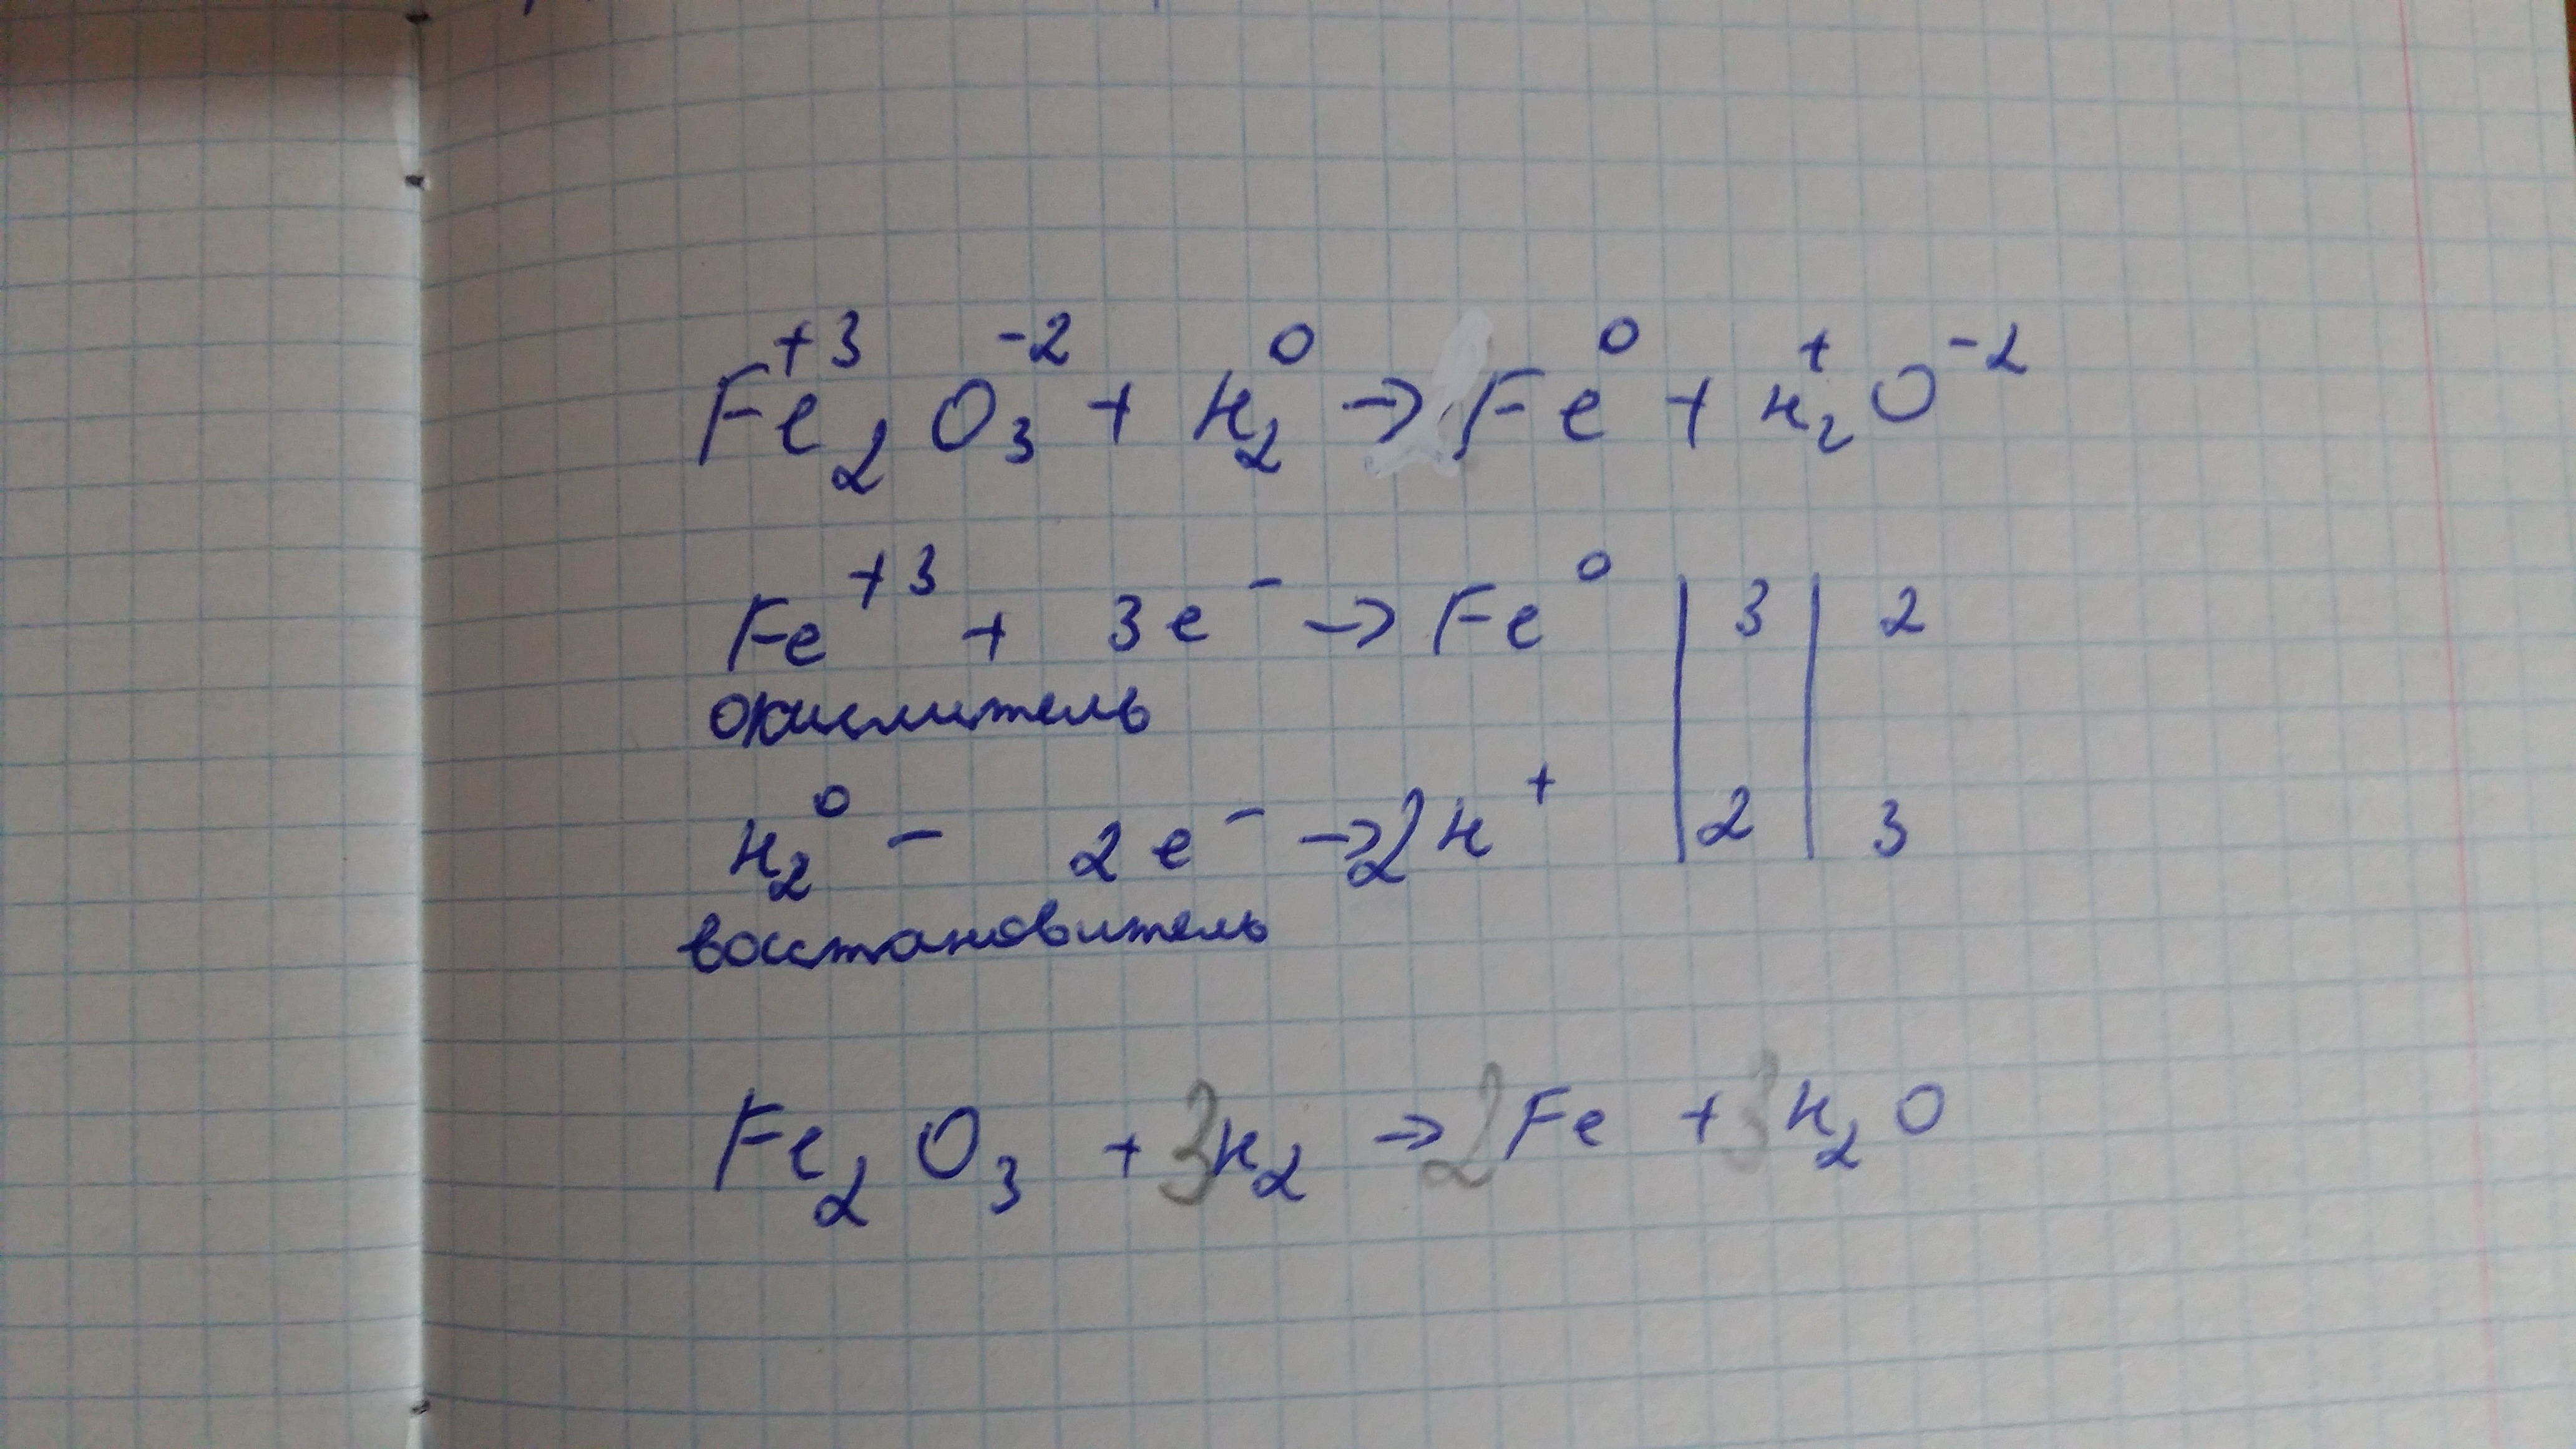 Fe₂⁺³O₃⁻² + H₂⁰ → Fe⁰ + H₂⁺O⁻²
Fe⁺³ + 3e⁻ → Fe⁰ | 3 | 2
окислитель
H₂⁰ − 2e⁻ → 2H⁺ | 2 | 3
восстановитель
Fe₂O₃ + 3H₂ → 2Fe + 3H₂O